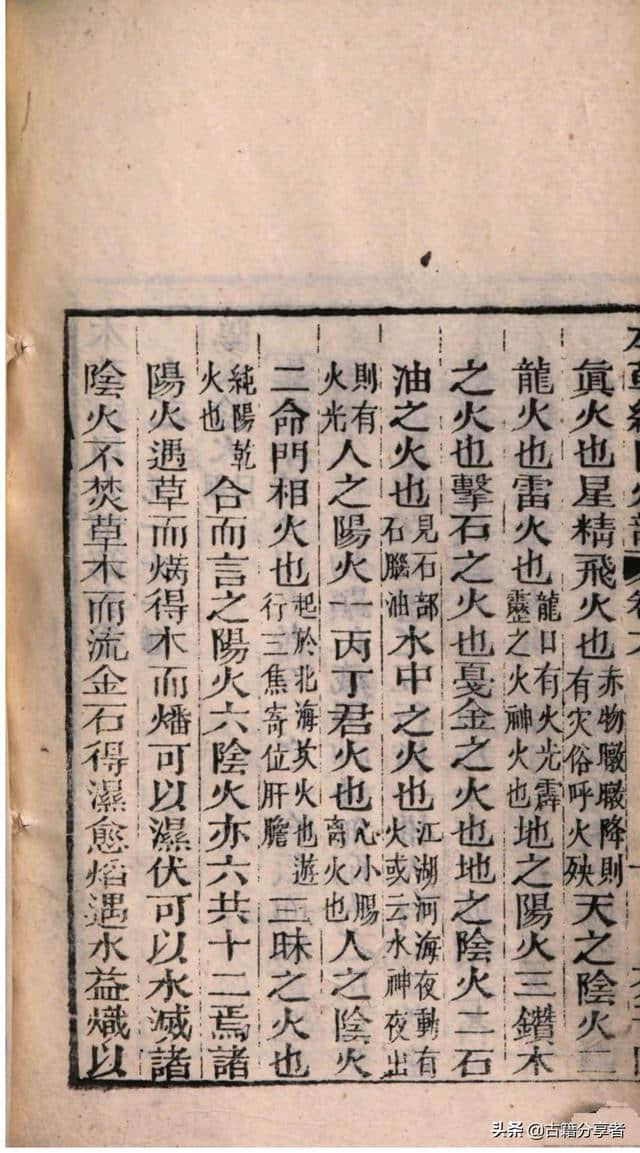 眞火也星精飛火也赤物暾暾降則有灾俗呼火殃天之陰火二
龍火也雷火也龍口有火光霹靂之火神火也地之陽火三鑽木
之火也擊石之火也戛金之火也地之陰火二石
油之火也見石部石腦油水中之火也江湖河海夜動有火或云水神夜出
則有火光人之陽火一丙丁君火也心小腸离火也人之陰火
二命門相火也起於北海坎火也遊行三焦寄位肝膽三昧之火也
純陽乾火也合而言之陽火六陰火亦六共十二焉諸
陽火遇草而焫得木而燔可以濕伏可以水滅諸
陰火不焚草木而流金石得濕愈焰遇水益熾以
头条 @古籍分享者